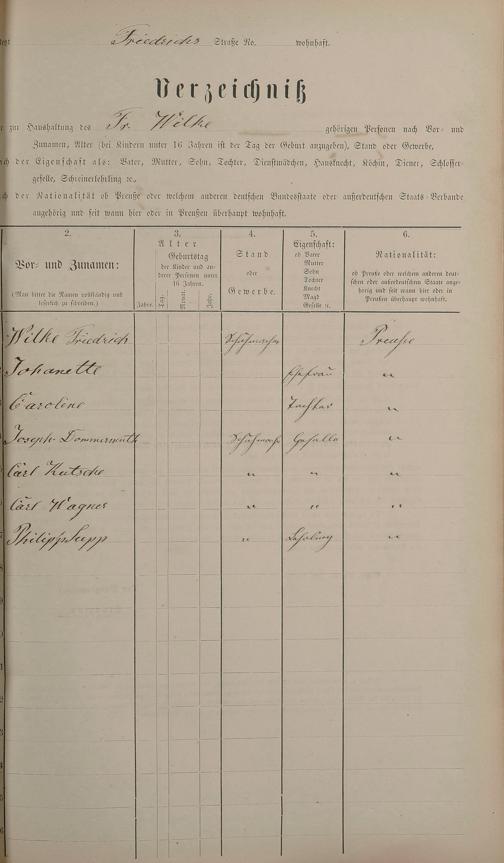 Friedrichs Straße No. wohnhaft.
Verzeichniß
zur Haushaltung des Fr. Wilke gehörigen Personen nach Vor- und
Zunamen, Alter (bei Kindern unter 16 Jahren ist der Tag der Geburt anzugeben), Stand oder Gewerbe,
der Eigenschaft als: Vater, Mutter, Sohn, Tochter, Dienstmädchen, Hausknecht, Köchin, Diener, Schlosser-
geselle, Schreinerlehrling ꝛc.,
der Nationalität ob Preuße oder welchem anderen deutschen Bundesstaate oder außerdeutschen Staats-Verbande
angehörig und seit wann hier oder in Preußen überhaupt wohnhaft.
2. 3. 4. 5. 6.
Vor- und Zunamen:
(Man bittet die Namen vollständig und
leserlich zu schreiben.)
Alter
Geburtstag
der Kinder und an-
derer Personen unter
16 Jahren.
Jahre. Tag. Monat. Jahr.
Stand
oder
Gewerbe.
Eigenschaft:
ob Vater
Mutter
Sohn
Tochter
Knecht
Magd
Geselle ꝛc.
Nationalität:
ob Preuße oder welchem anderen deut-
schen oder außerdeutschen Staate ange-
hörig und seit wann hier oder in
Preußen überhaupt wohnhaft.
Wilke Friedrich Schuhmacher Preuße
Johanette Ehefrau "
Caroline Tochter "
Joseph Dommermuth Schuhmach Geselle "
Carl Kutsche " " "
Carl Wagner " " "
Philipp Sepp " Lehrling "